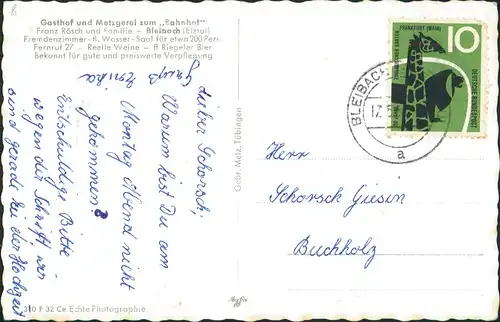 Gasthof und Metzgerei zum „Bahnhof"
Franz Räsch und Familie - Bleibach (Elztal)
Fremdenzimmer - fl. Wasser - Saal für etwa 200 Pers.
Fernruf 27 - Reelle Weine - ff Riegeler Bier
Bekannt für gute und preiswerte Verpflegung
Gruß Monika
Lieber Schorsch;
Warum bist Du am
Montag Abend nicht
gekommen?
Entschuldige Bitte
wegen der Schrift wir
sind gerade bei der Hochzeit
Gebr. Metz, Tübingen
310 F 32 Ce Echte Photographie
BLEIBACH
17.5
a
100 JAHRE
ZOOLOGISCHER GARTEN
FRANKFURT (MAIN)
10
DEUTSCHE BUNDESPOST
Herr
Schorsch Giesin
Buchholz